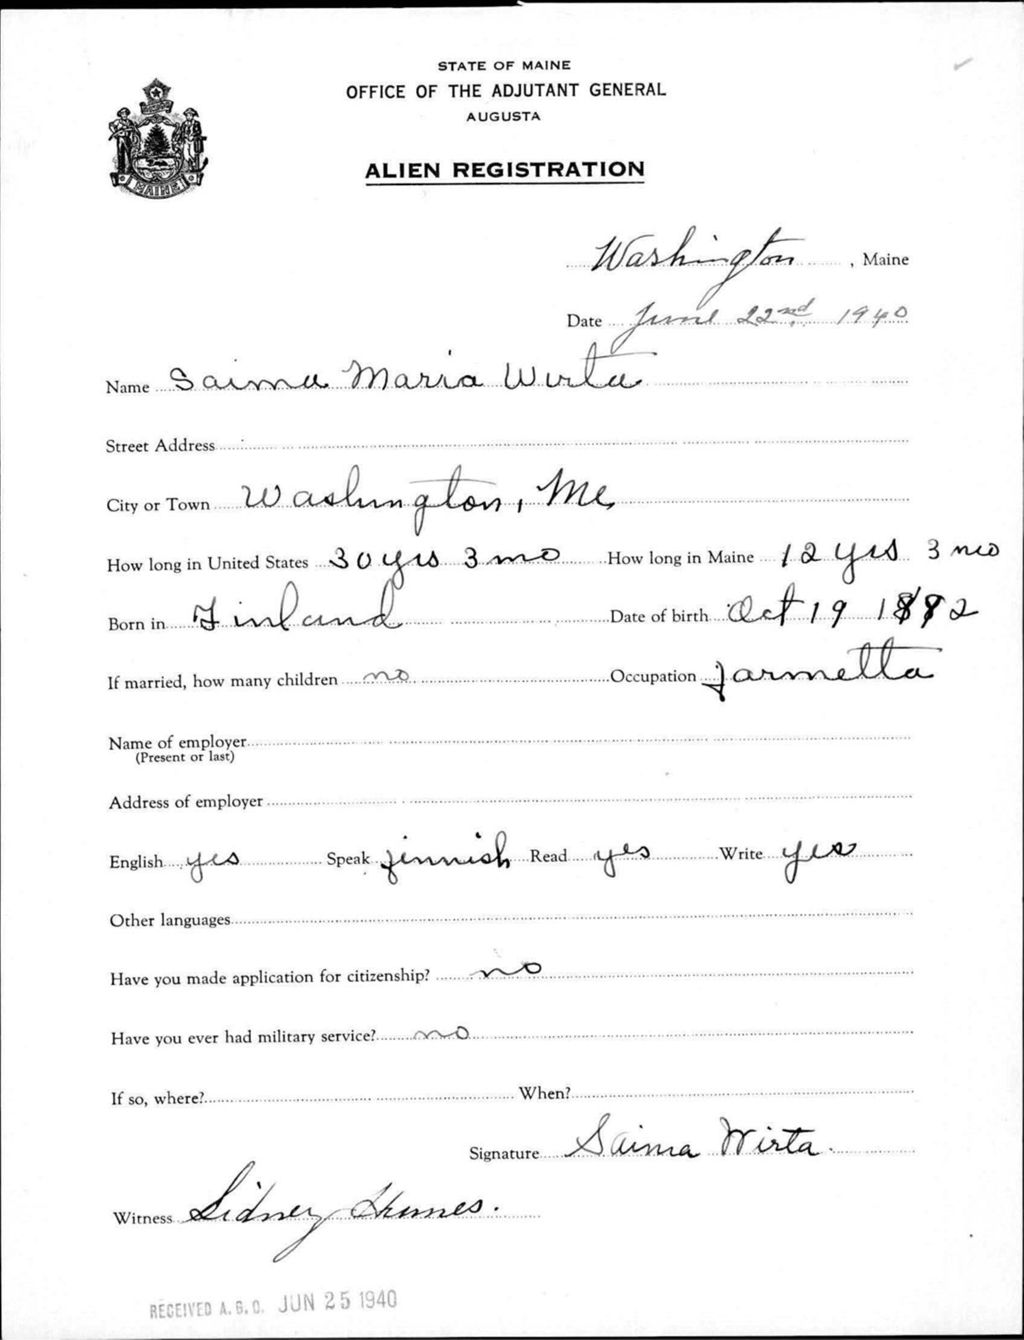 STATE OF MAINE
OFFICE OF THE ADJUTANT GENERAL
AUGUSTA
ALIEN REGISTRATION
MAINE
Washington, Maine
Date June 22nd 1940
Name Saima Maria Wirta
Street Address
City or Town Washington, Me
How long in United States 30 yrs 3 mo How long in Maine 12 yrs 3 mo
Born in Finland Date of birth Oct 19
If married, how many children no Occupation
Name of employer
(Present or last)
Address of employer
English yes Speak finnish Read yes Write yes
Other languages
Have you made application for citizenship? no
Have you ever had military service? no
If so, where? When?
Signature Saima Wirta.
Witness Sidney Humes.
RECEIVED A.G.O. JUN 25 1940